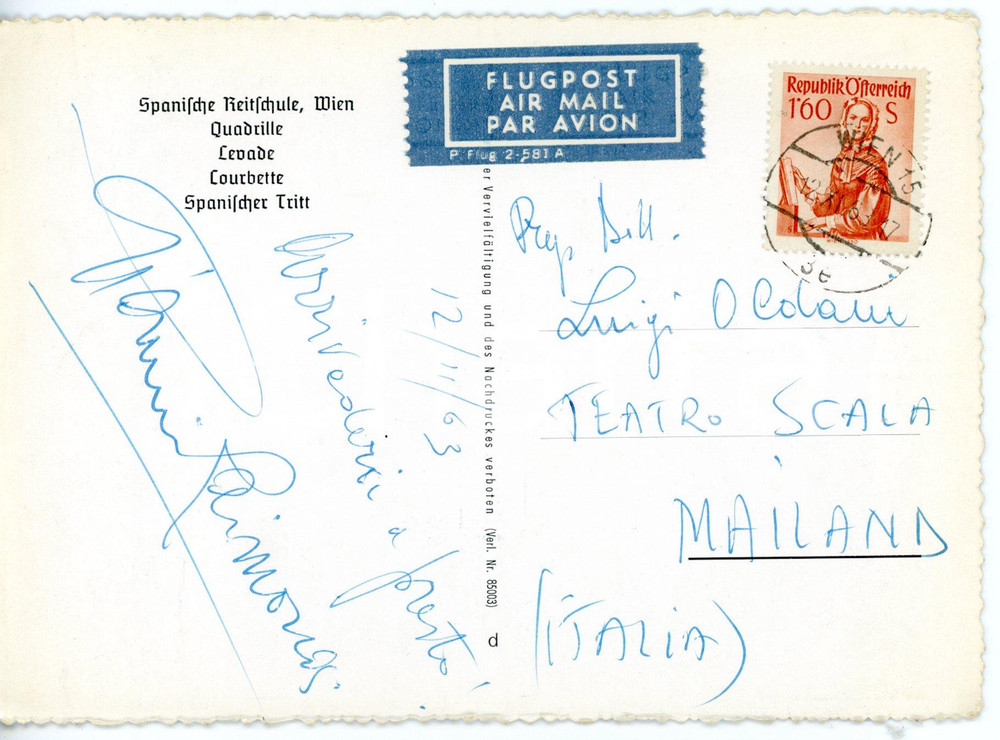 Spanische Reitschule, Wien
Quadrille
Levade
Courbette
Spanischer Tritt
FLUGPOST
AIR MAIL
PAR AVION
P. Flug 2-581 A
Republik Österreich
1'60 S
WIEN 15
3e
er Vervielfältigung und des Nachdruckes verboten (Verl. Nr. 85003)
d
12/11/63
Arrivederci a presto!
Gianni Raimondi
Luigi Oldani
TEATRO SCALA
MAILAND
(ITALIA)